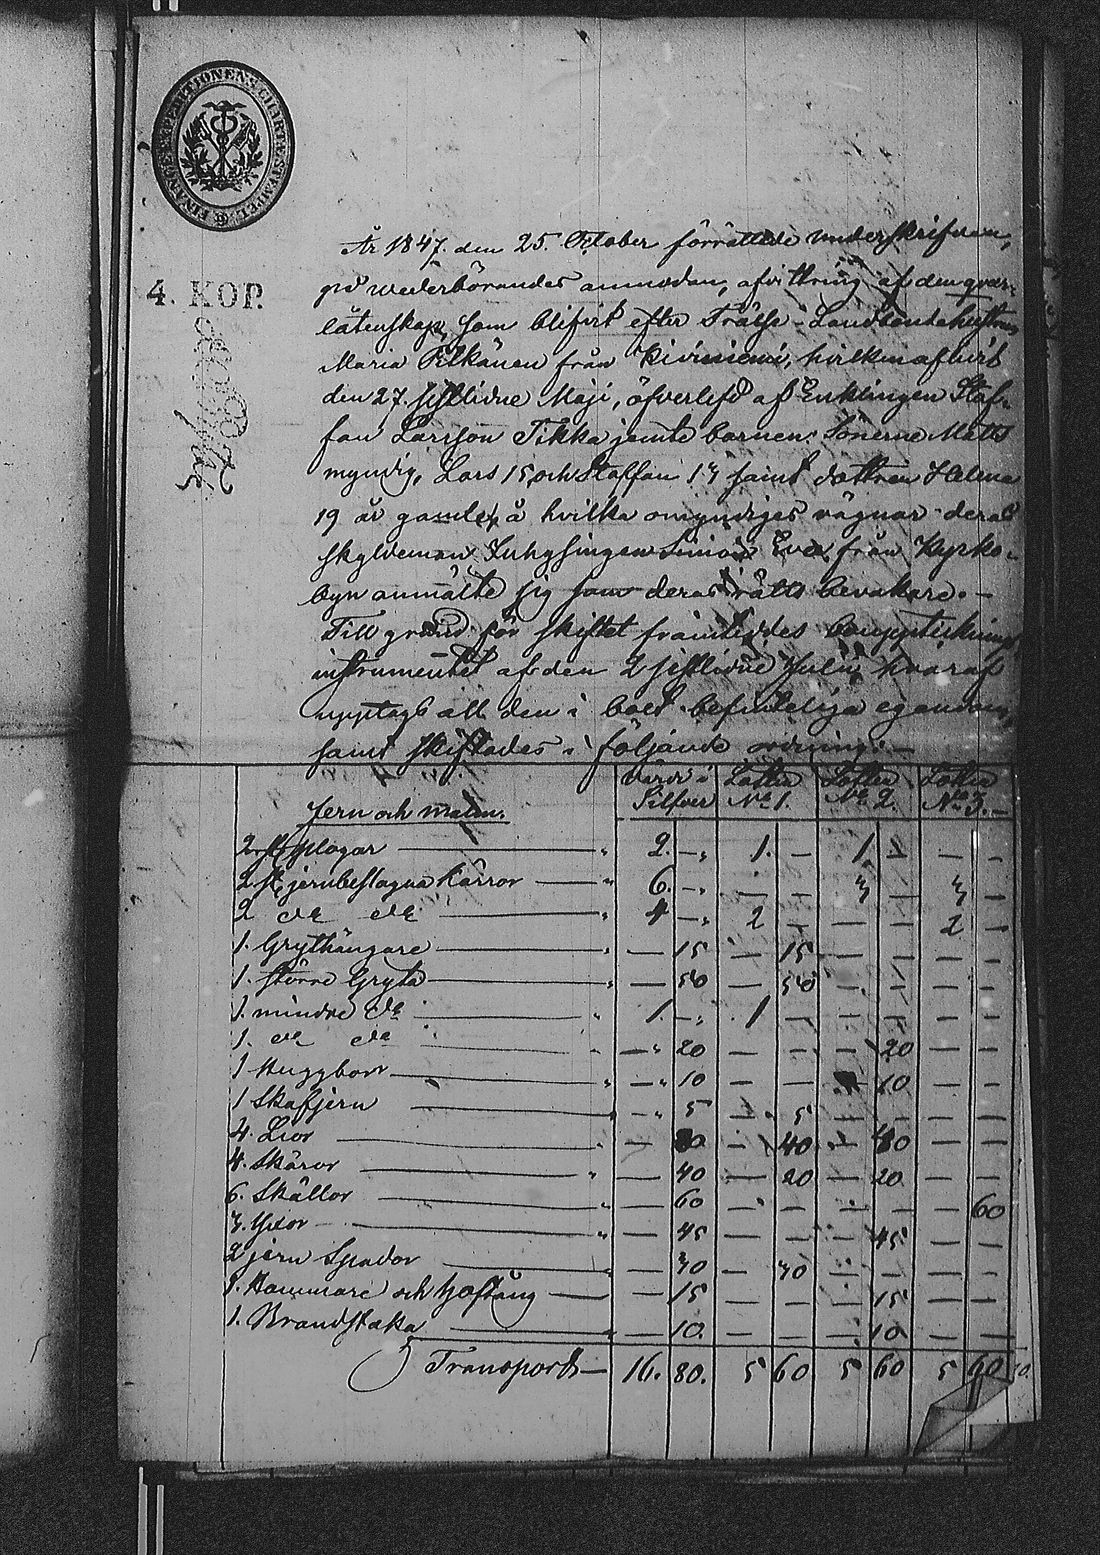 FINANCE EXPEDITIONENS CHARTÆ STÆMPEL
4. KOP.
År 1847. den 25 October förrättade underskrifven,
på wederbörandes anmodan, afvittring af den qvar-
låtenskap, som blifvit efter Frälse-Landbondehustrun
Maria Pilkänen från Kiviniemi, hvilken aflidit
den 27. sistlidne Maji, öfverlefd af Enklingen Staf-
fan Larsson Tikka jemte barnen: Sönerne Matts
myndig, Lars 15, och Staffan 13 samt dottren Helena
19 år gamle, å hvilka omyndiges vägnar deras
skyldeman Inhysingen Simon från Kyrko-
byn anmälte sig som deras rätts bevakare. —
Till grund för skiftet framteddes bouppteknings
instrumentet af den 2 sistlidne Julii, hvaraf
upptogs all den i boet befinteliga egendom,
samt skiftades i följande ordning: —
Värde i Silfver Lotten No 1. Lotten No 2. Lotten No 3. —
Jern och malm.
2. st. plogar — 2. — 1. — 1 — — —
2. st. jernbeslagna Kärror — 6. — — — 3 — 3 —
2 do do — 4 — 2 — — — 2 —
1. Grythängare — — 15 — 15 — — — —
1. större Gryta — — 50 — 50 — — — —
1. mindre do — 1. — 1 — — — — —
1. do do — — 20 — — — 20 — —
1 Huggborr — — 10 — — — 10 — —
1 Skafjern — — 5 — 5 — — — —
4. Lior — — 80 — 40 — 40 — —
4. Skäror — — 40 — 20 — 20 — —
6. Skällor — — 60 — — — — — 60
3. Yxor — — 45 — — — 45 — —
2 jern Spador — — 30 — 30 — — — —
1. Hammare och Hoftång — — 15 — — — 15 — —
1. Brandstaka — — 10. — — — 10 — —
Transport — 16. 80. 5 60 5 60 5 60